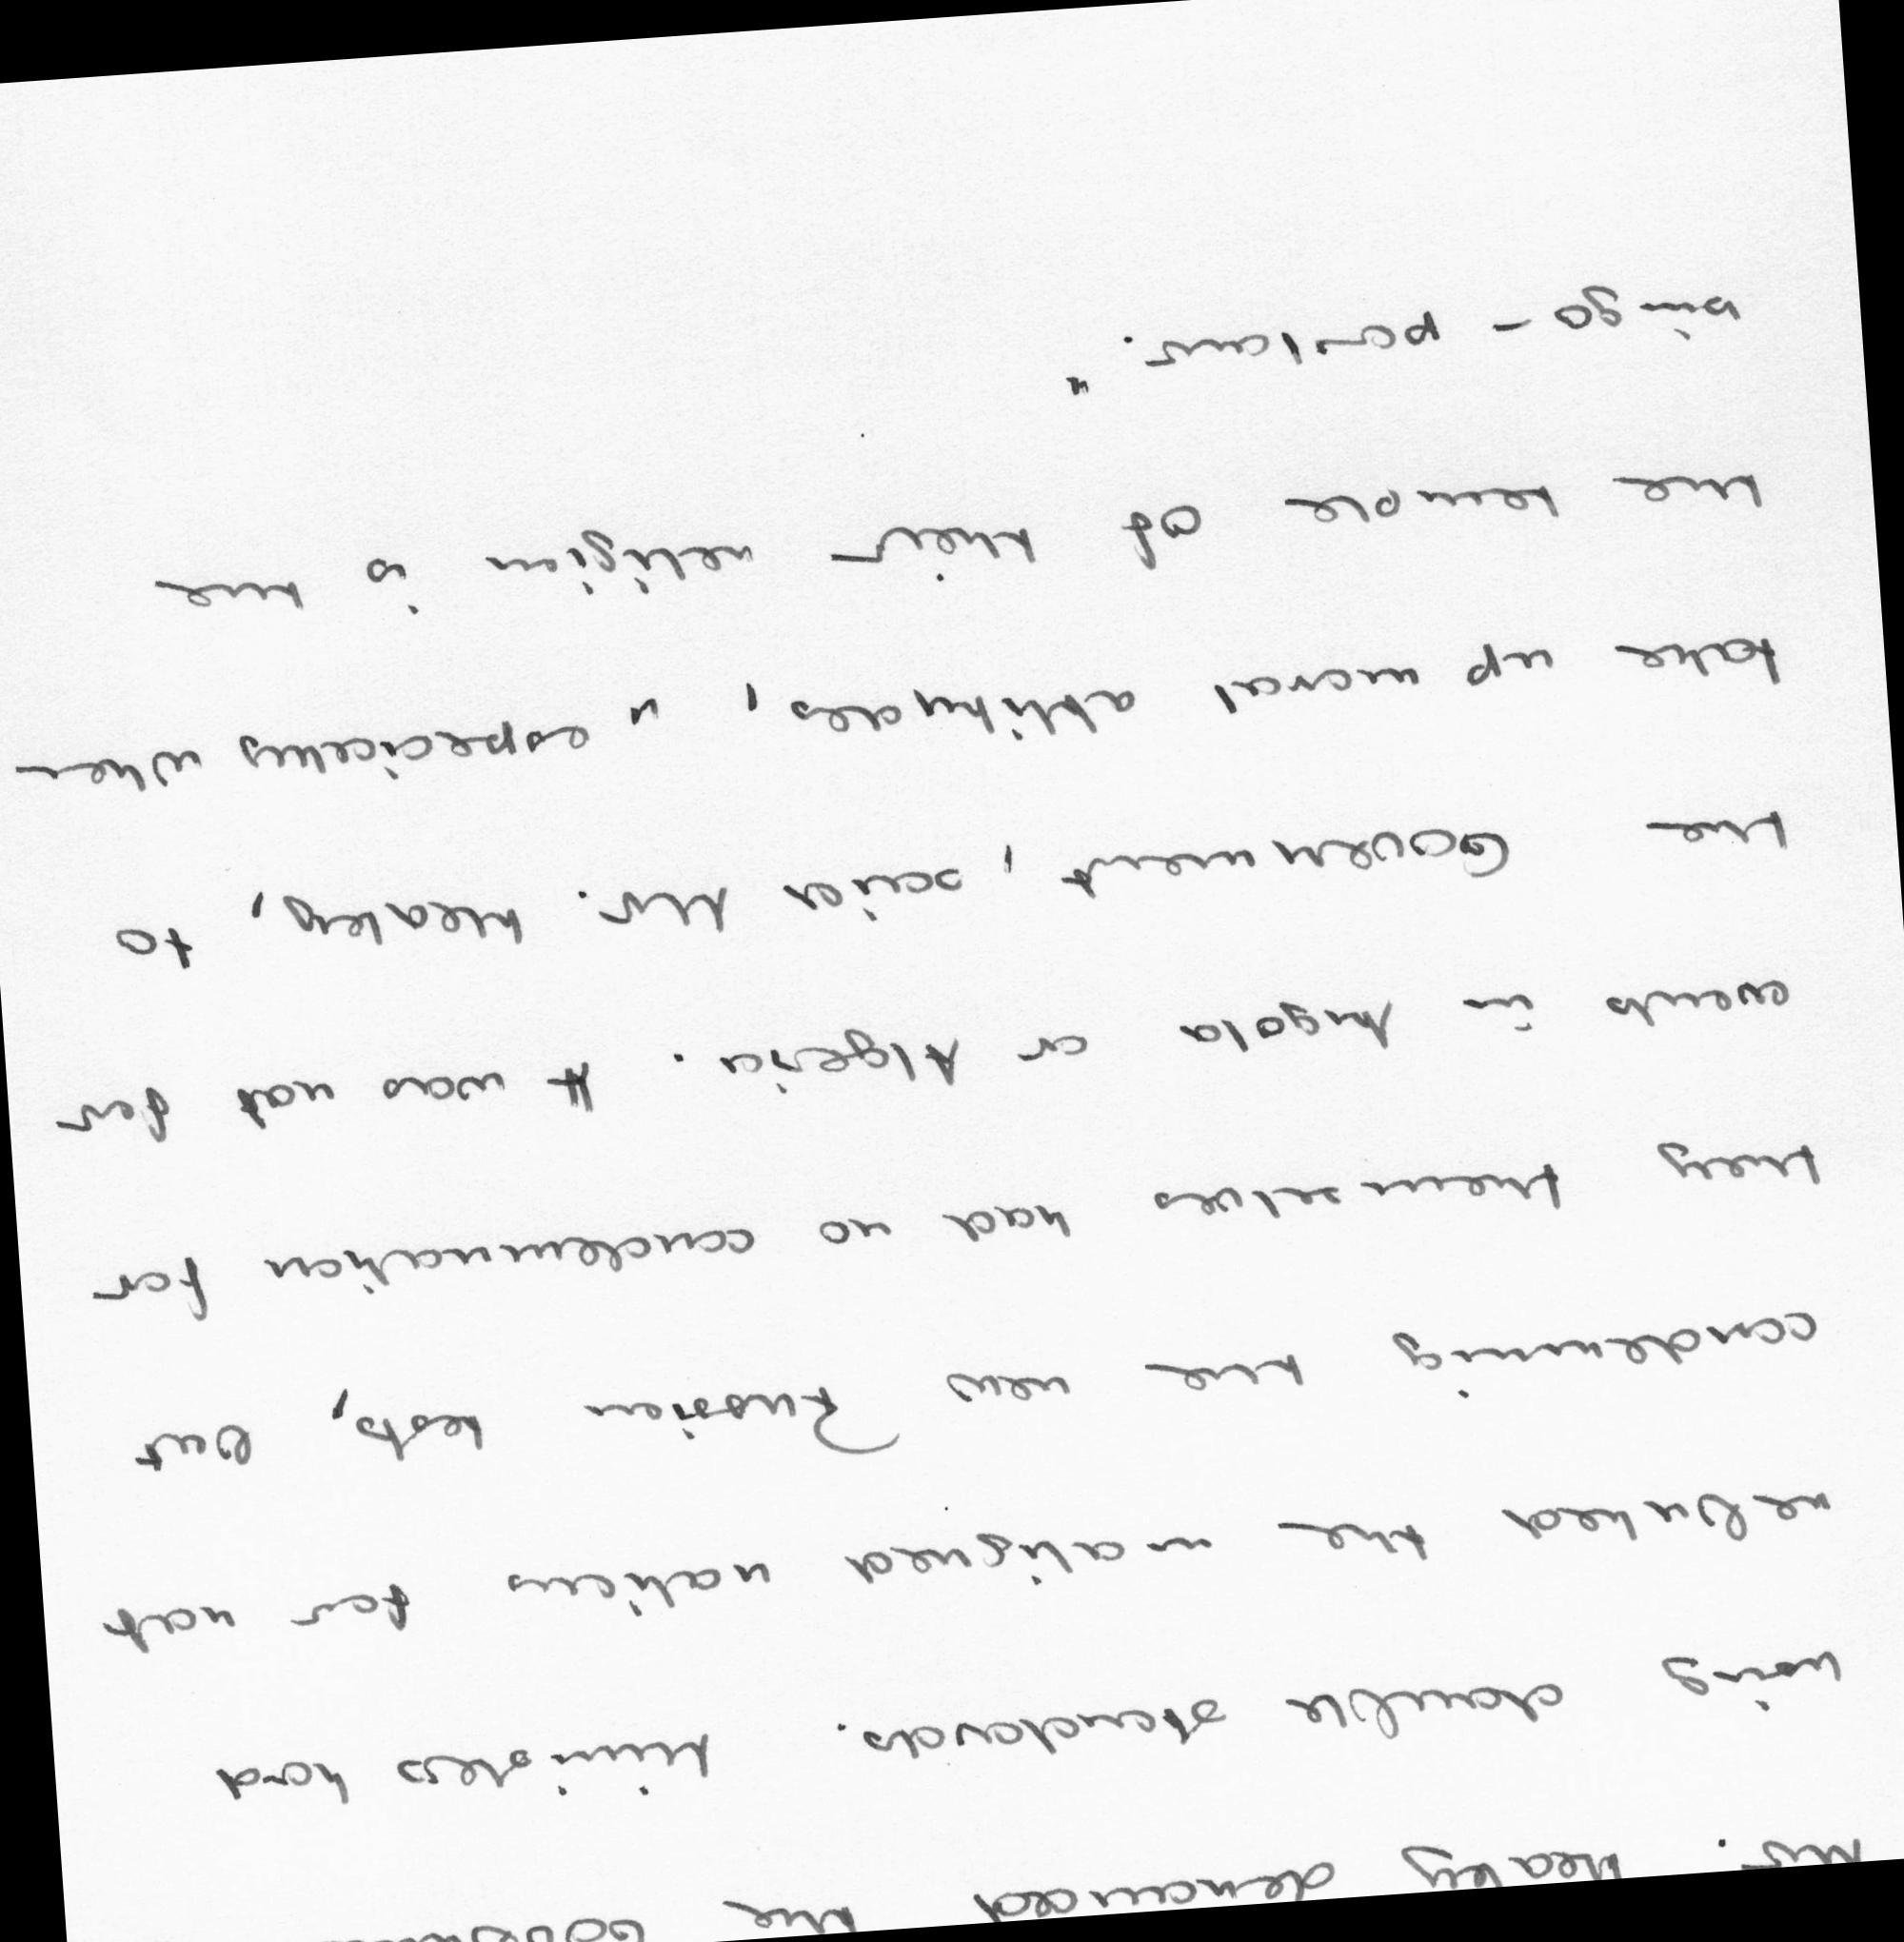 Mr. Healey denounced the
using double standards. Ministers had
rebuked the unaligned nations for not
condemning the new Russian tests, but
they themselves had no condemnation for
events in Angola or Algeria. It was not for
the Government, said Mr. Healey, to
take up moral attitudes, "especially when
the temple of their religion is the
bingo-parlour."